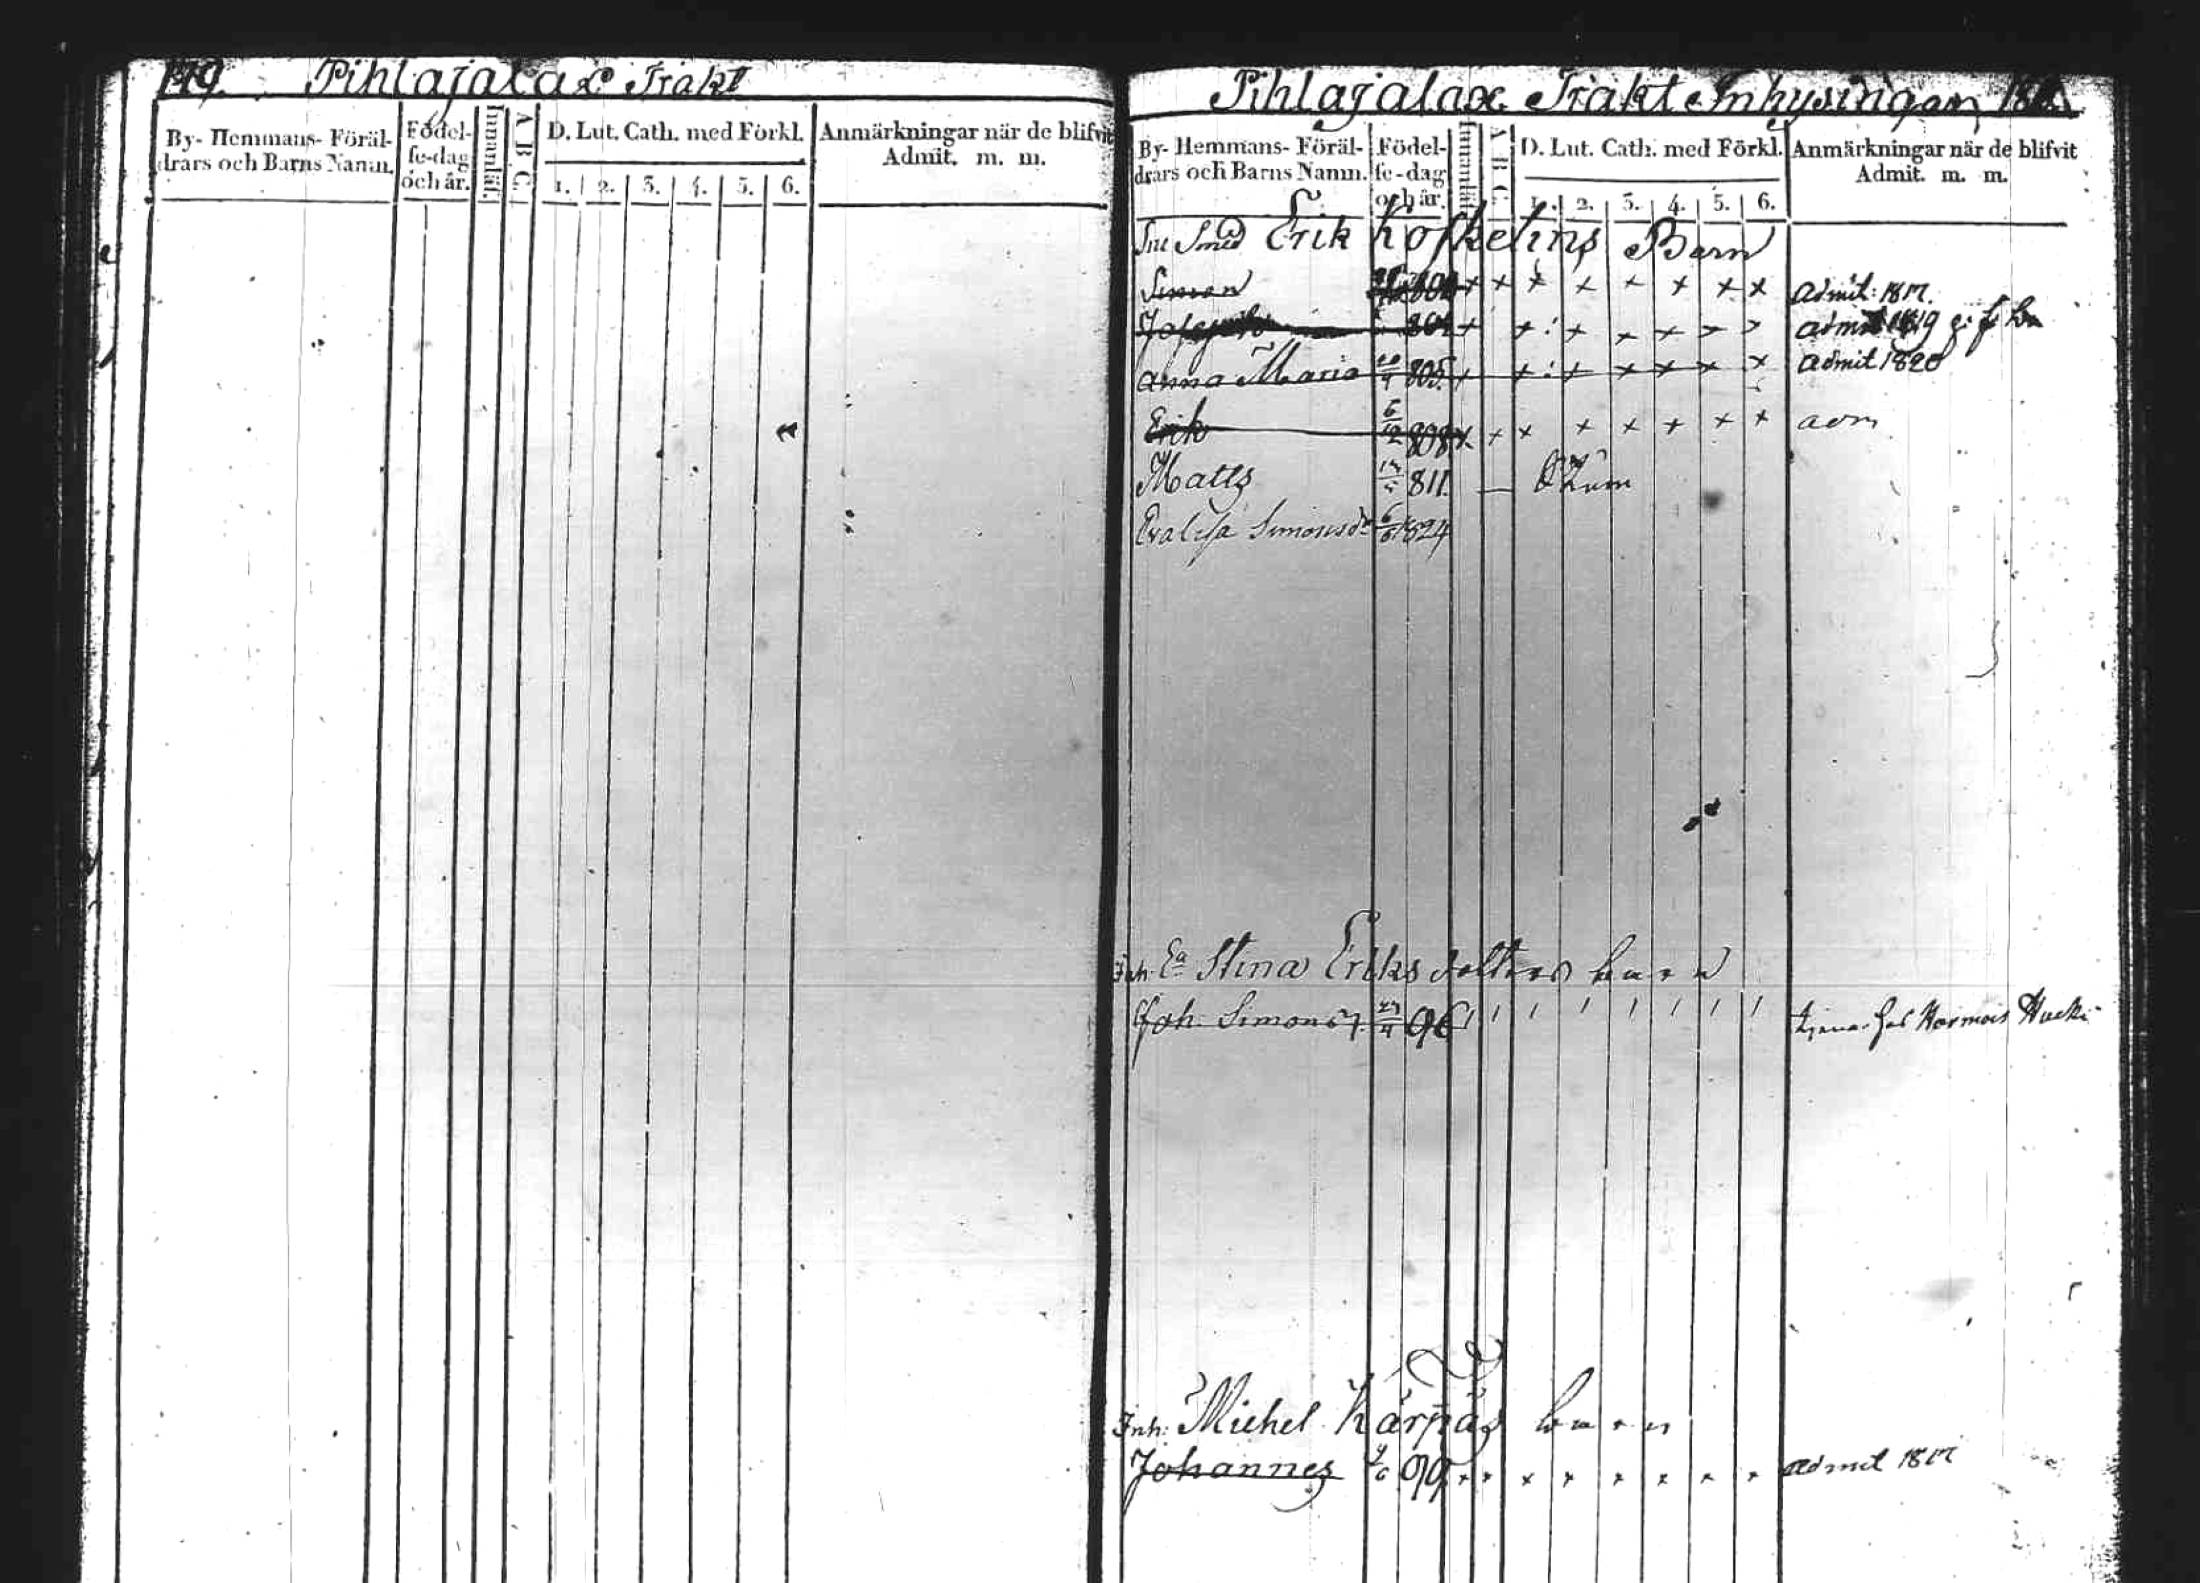 179. Pihlajalax Träkt
By- Hemmans- Föräl-
drars och Barns Namn.
Födel-
se-dag
och år.
Innanläs.
A B C
D. Lut. Cath. med Förkl.
1. 2. 3. 4. 5. 6.
Anmärkningar när de blifvit
Admit. m. m.
Pihlajalax Träkt Inhysingar
By- Hemmans- Föräl-
drars och Barns Namn.
Födel-
se-dag
och år.
Innanläs.
A B C
D. Lut. Cath. med Förkl.
1. 2. 3. 4. 5. 6.
Anmärkningar när de blifvit
Admit. m. m.
Smed Erik Koskelins Barn
Simon x x x x x x x x Admit: 1817.
Joseph admit 1819
Anna Maria 20/4 805. x x : x x x x x admit 1820
Erik 6/12 808 x x x x x x x x adm
Matts 811.
Evalisa Simonsdr 6/8 1824
Inh: Ea Stina Eriks dotters barn
Joh: Simons 96
Inh: Michel Kärpäs barn
Johannes 99. x x x x x x x x admit 1817